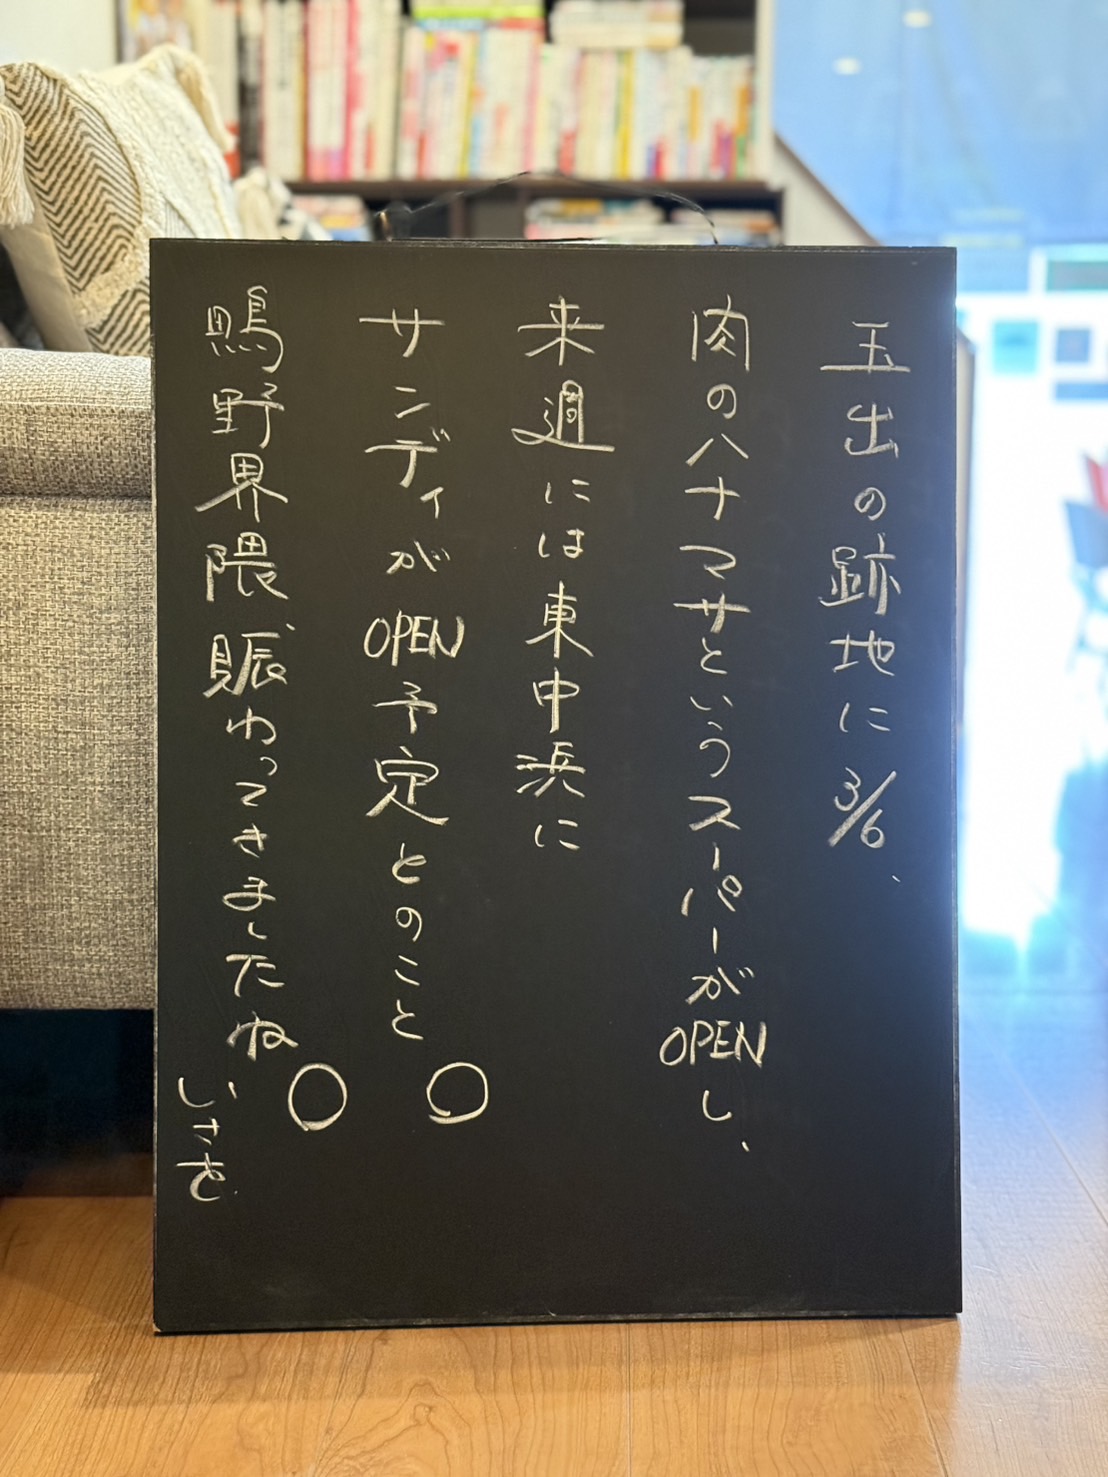 玉出の跡地に3/6、
肉のハナマサというスーパーがOPENし、
来週には東中浜に
サンディがOPEN予定とのこと。
鴫野界隈、賑わってきましたね。
いさを